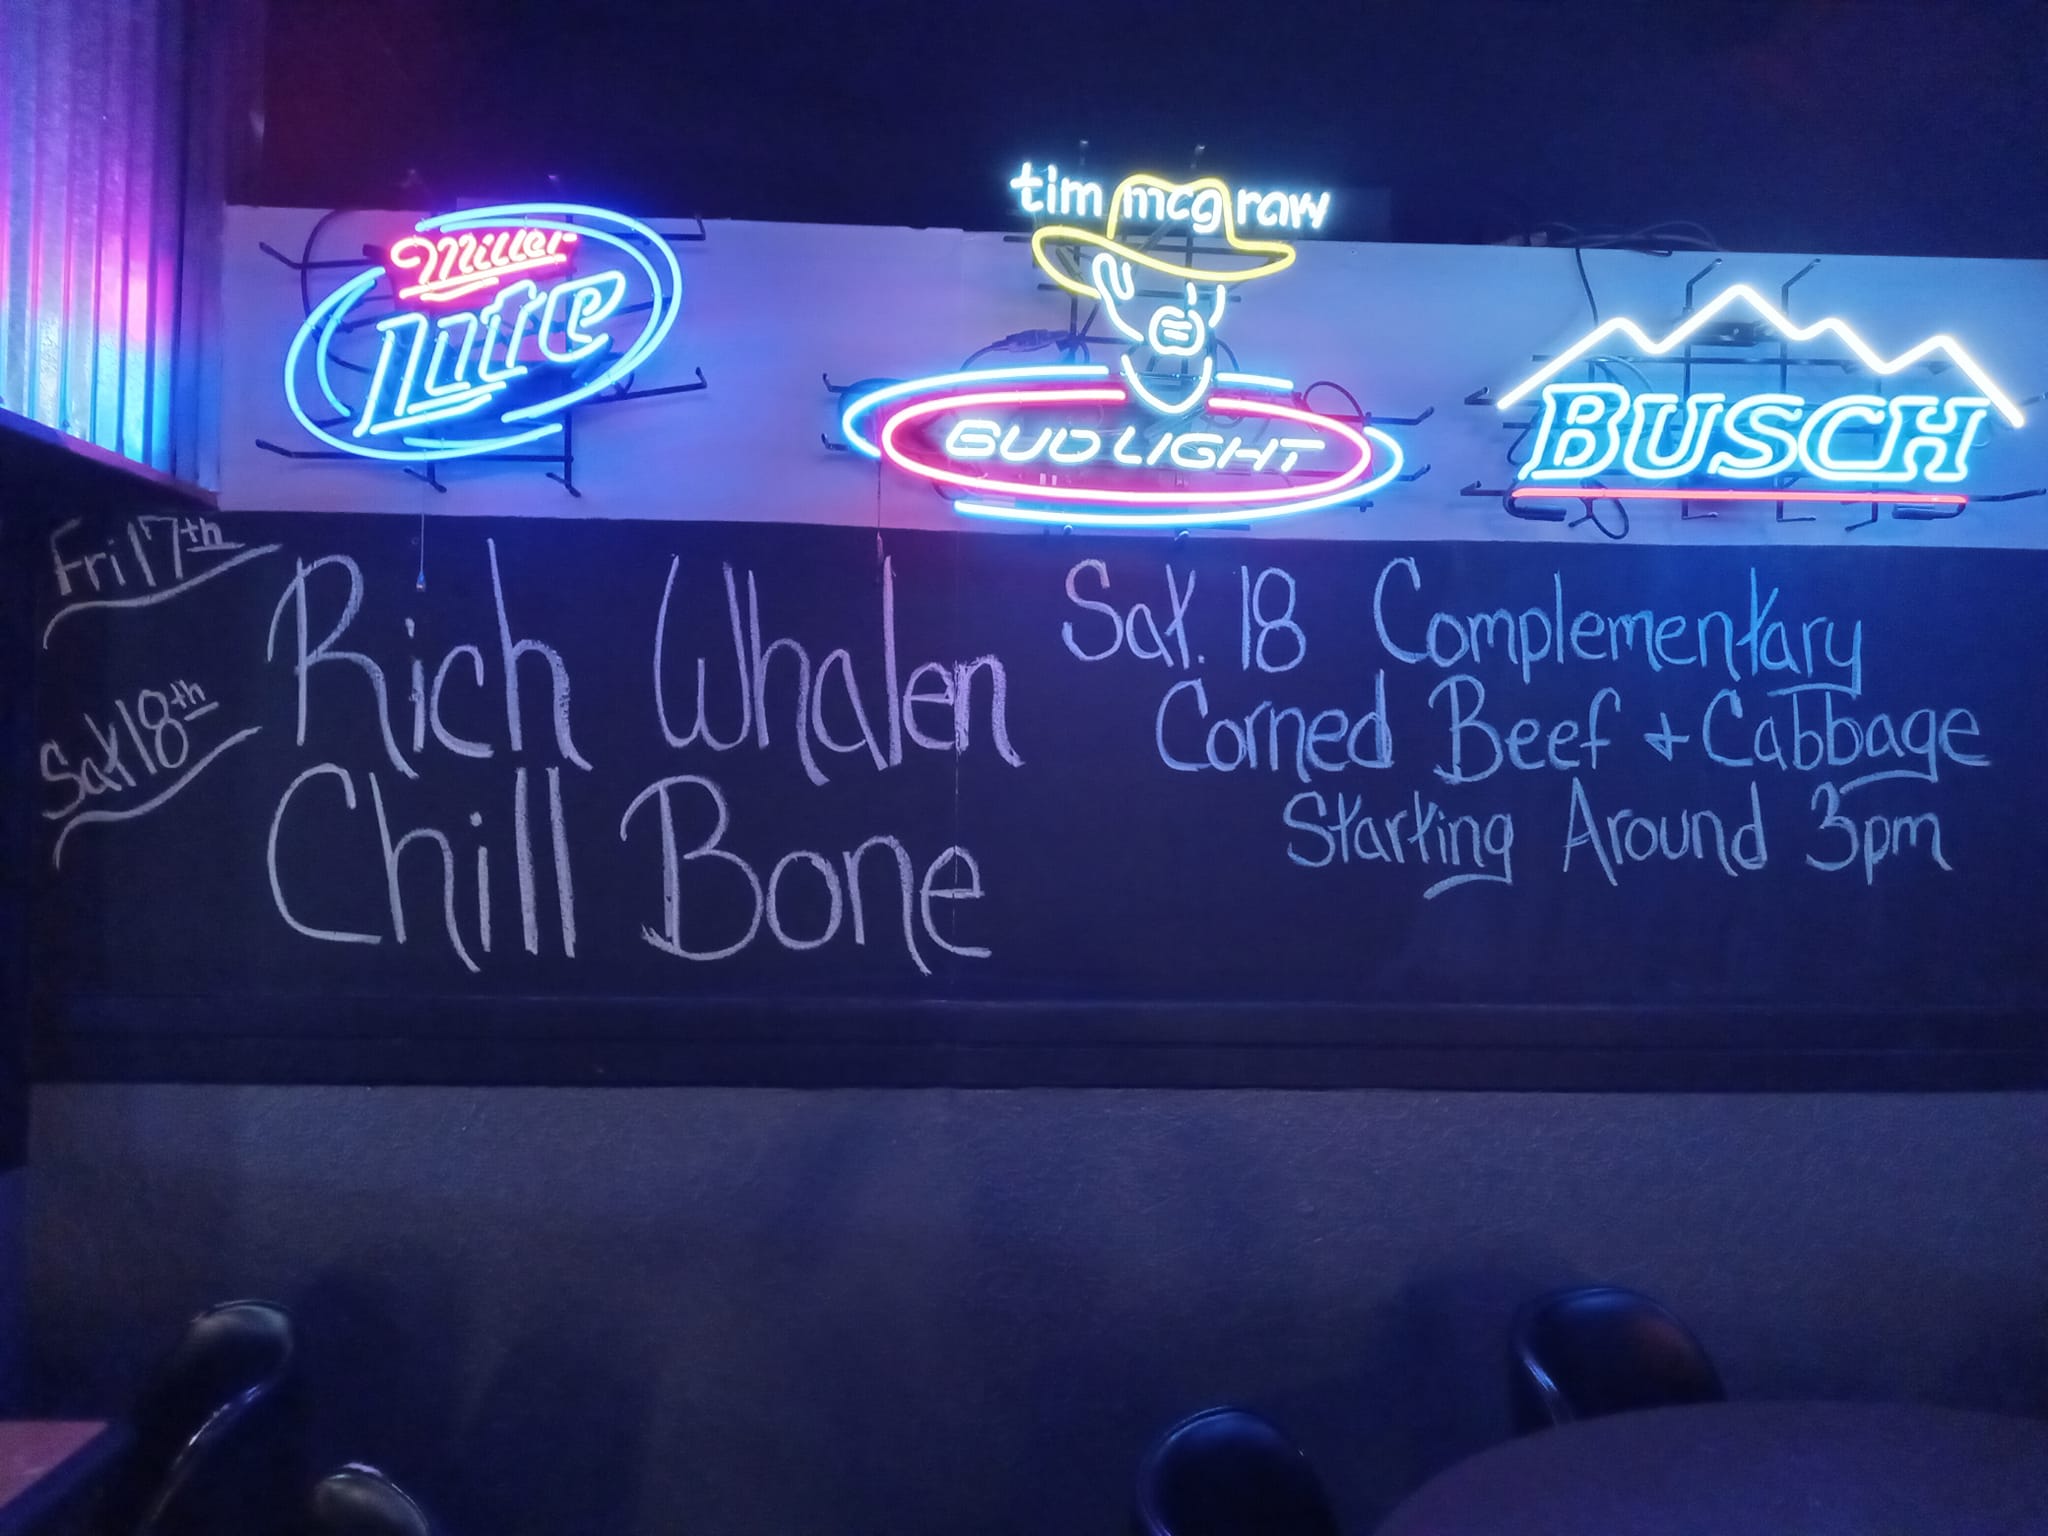 Miller
Lite
tim mcgraw
BUD LIGHT
BUSCH
Fri 17th
Rich Whalen
Sat 18th
Chill Bone
Sat. 18 Complementary
Corned Beef + Cabbage
Starting Around 3pm